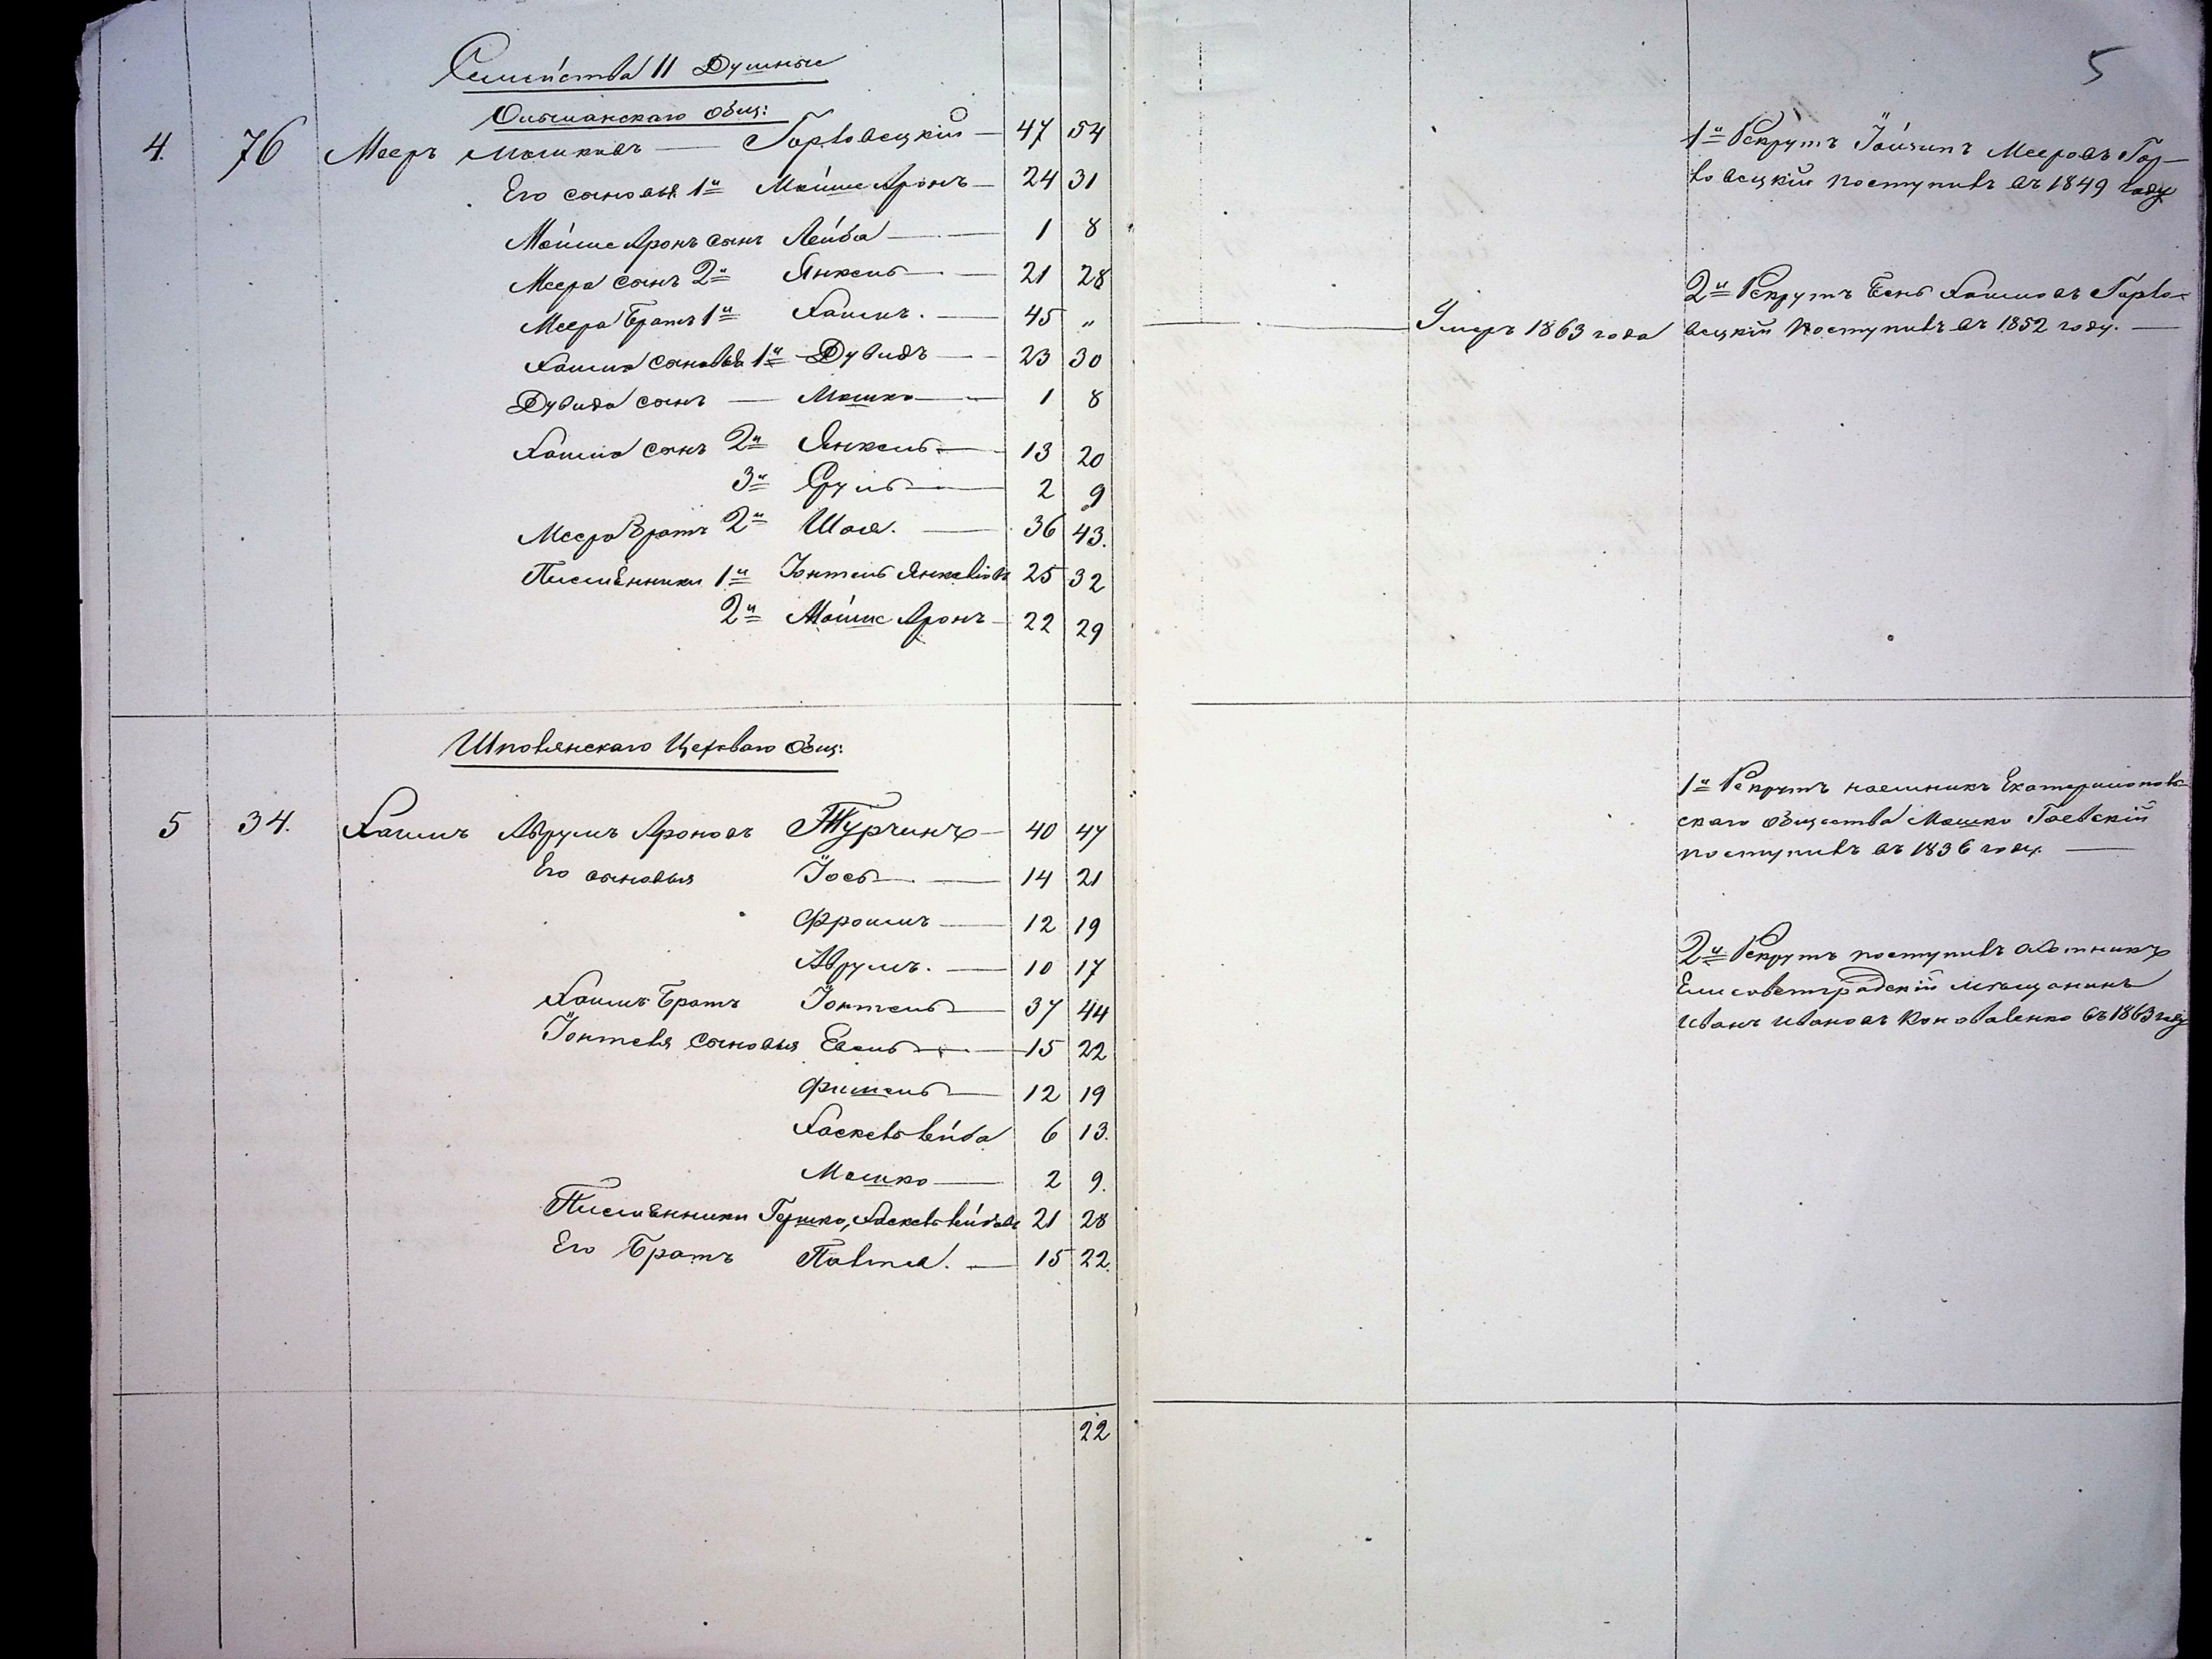 5
Семейства 11 Душные
Ольшанскаго общ:
4. 76 Мееръ Мошковъ — Горловецкій — 47 54
Его сыновья 1й Мойше Аронъ — 24 31
Мойше Аронъ сынъ Лейба — 1 8
Меера сынъ 2й Янкель — 21 28
Меера братъ 1й Хаимъ. — 45 „ — Умеръ 1863 года
Хаима сыновья 1й Дувидъ — 23 30
Дувида сынъ — Мошко — 1 8
Хаима сынъ 2й Янкель — 13 20
3й Сруль — 2 9
Меера братъ 2й Шая. — 36 43.
Племѣнники 1й Іонтель Янкеліовъ 25 32
2й Мойше Аронъ — 22 29
1й Рекрутъ Іойчинъ Мееровъ Гор-
ловецкій поступилъ въ 1849 году
2й Рекрутъ Бень Хаимовъ Горло-
вецкій поступилъ въ 1852 году. —
Шполянскаго общ:
5 34. Хаимъ Аврумъ Ароновъ Турчинъ — 40 47
Его сыновья Іось — 14 21
Фроимъ — 12 19
Аврумъ. — 10 17
Хаимъ братъ Іонтель — 37 44
Іонтеля сыновья Евель — 15 22
Фишель — 12 19
Хаскель Лейба 6 13.
Мошко — 2 9.
Племѣнники Гершко, Хаскель Лейбовъ 21 28
Его братъ Павтел. — 15 22.
1й Рекрутъ наемникъ Екатеринополь-
скаго общества Мошко Гаевскій
поступилъ въ 1836 году. —
2й Рекрутъ поступилъ охотникъ
Елисоветградскій мѣщанинъ
Иванъ Ивановъ Коноваленко въ 1863 году
22